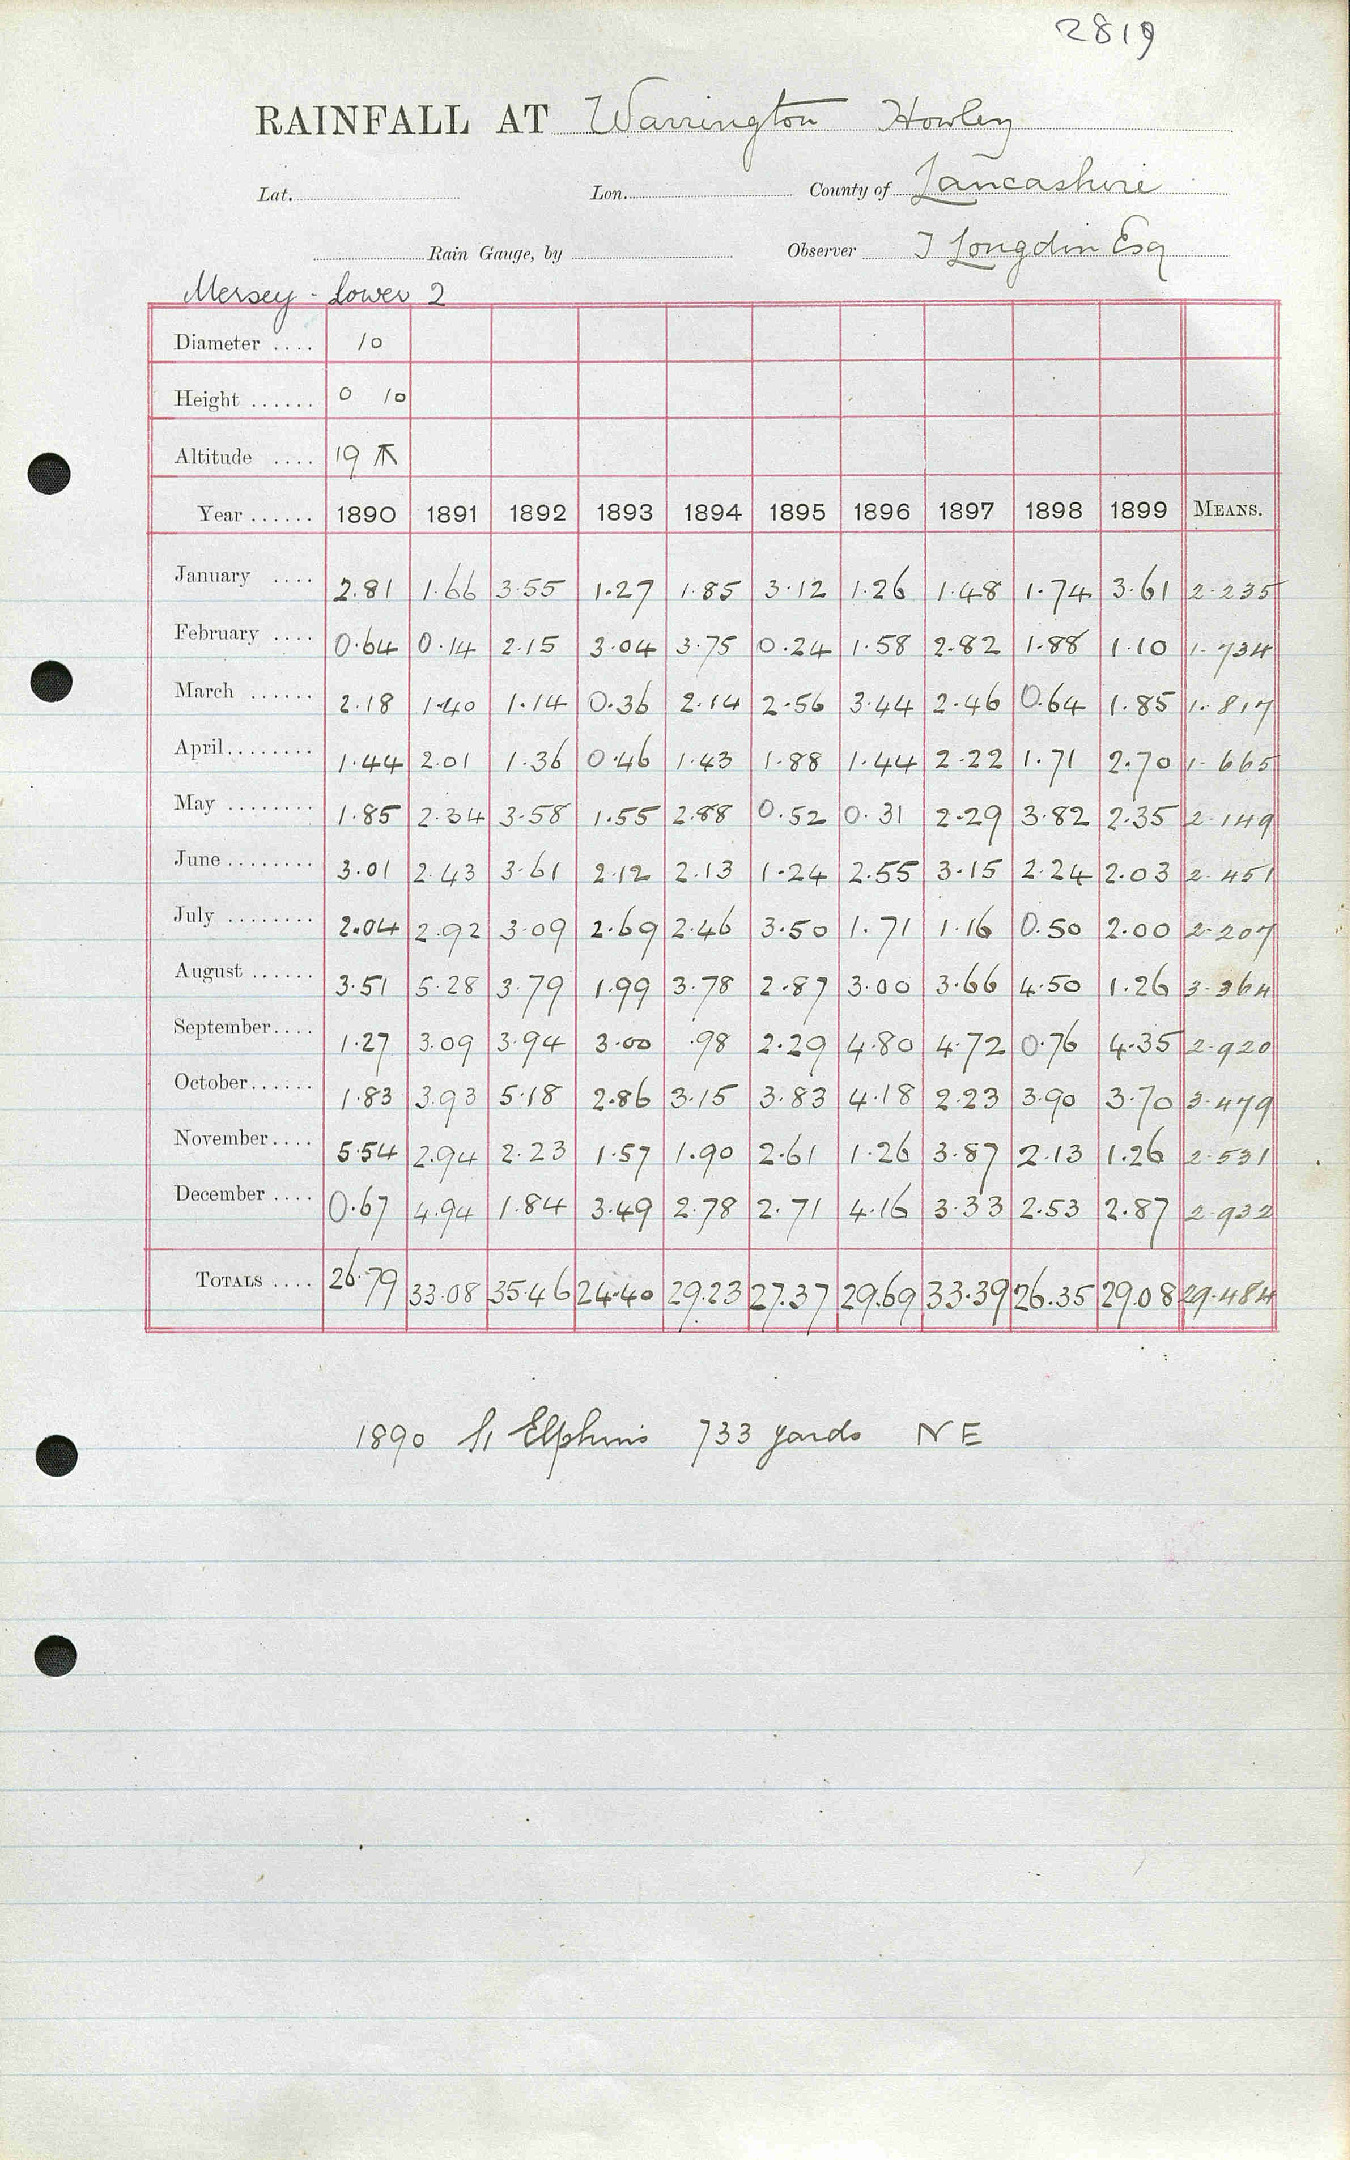 2819
RAINFALL AT Warrington Howley
Lat. Lon. County of Lancashire
Rain Gauge, by Observer T Longdin Esq
Mersey - Lower 2
Diameter .... 10
Height ...... 0 10
Altitude .... 19
Year ...... 1890 1891 1892 1893 1894 1895 1896 1897 1898 1899 MEANS.
January .... 2.81 1.66 3.55 1.27 1.85 3.12 1.26 1.48 1.74 3.61 2.235
February .... 0.64 0.14 2.15 3.04 3.75 0.24 1.58 2.82 1.88 1.10 1.734
March ...... 2.18 1.40 1.14 0.36 2.14 2.56 3.44 2.46 0.64 1.85 1.817
April........ 1.44 2.01 1.36 0.46 1.43 1.88 1.44 2.22 1.71 2.70 1.665
May ........ 1.85 2.34 3.58 1.55 2.88 0.52 0.31 2.29 3.82 2.35 2.149
June ........ 3.01 2.43 3.61 2.12 2.13 1.24 2.55 3.15 2.24 2.03 2.451
July ........ 2.04 2.92 3.09 2.69 2.46 3.50 1.71 1.16 0.50 2.00 2.207
August ...... 3.51 5.28 3.79 1.99 3.78 2.87 3.00 3.66 4.50 1.26 3.364
September.... 1.27 3.09 3.94 3.00 .98 2.29 4.80 4.72 0.76 4.35 2.920
October...... 1.83 3.93 5.18 2.86 3.15 3.83 4.18 2.23 3.90 3.70 3.479
November.... 5.54 2.94 2.23 1.57 1.90 2.61 1.26 3.87 2.13 1.26 2.531
December .... 0.67 4.94 1.84 3.49 2.78 2.71 4.16 3.33 2.53 2.87 2.932
TOTALS .... 26.79 33.08 35.46 24.40 29.23 27.37 29.69 33.39 26.35 29.08 29.484
1890 St Elphins 733 yards NE